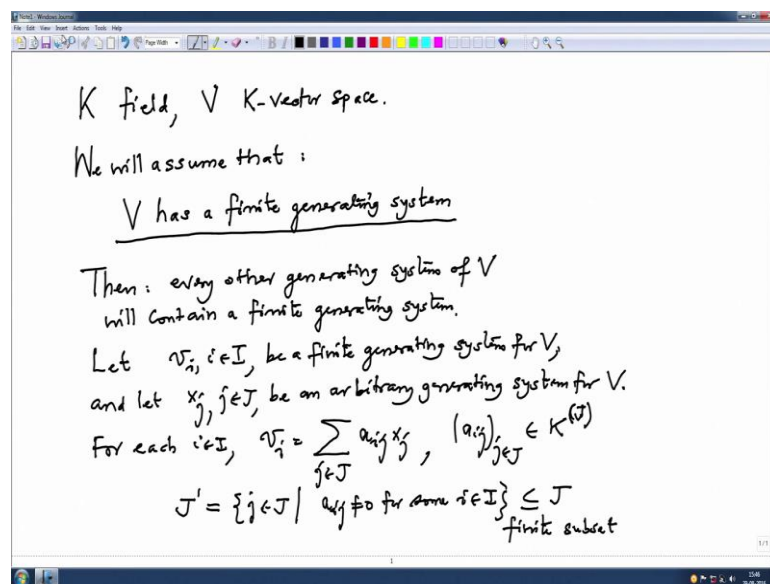 Note1 - Windows Journal
File Edit View Insert Actions Tools Help
Page Width
B I
K field, V K-vector space.
We will assume that :
V has a finite generating system
Then : every other generating system of V
will contain a finite generating system.
Let v_i, i∈I, be a finite generating system for V,
and let x_j, j∈J, be an arbitrary generating system for V.
For each i∈I, v_i = ∑_{j∈J} a_{ij} x_j , (a_{ij})_{j∈J} ∈ K^{(J)}
J' = {j∈J | a_{ij} ≠ 0 for some i∈I} ⊆ J
finite subset
1/1
1
15:46